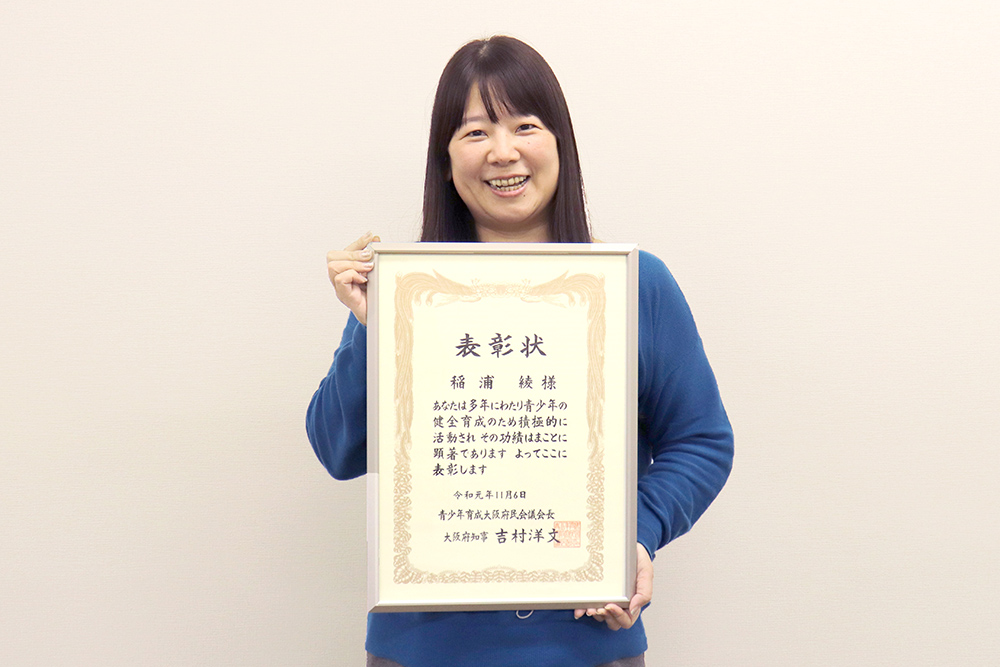 表彰状
稲浦 綾様
あなたは多年にわたり青少年の
健全育成のため積極的に
活動され その功績はまことに
顕著であります よってここに
表彰します
令和元年11月6日
青少年育成大阪府民会議会長
大阪府知事 吉村洋文